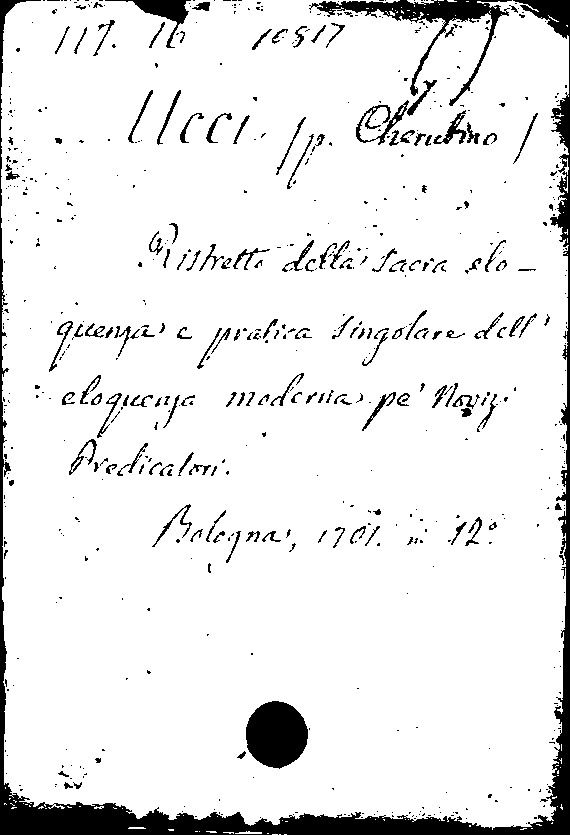 117. 16 10817
Ucci. (p. Cherubino)
Ristretto della sacra elo-
quenza e pratica singolare dell'
eloquenza moderna pe' Novizi
Predicatori.
Bologna, 1701. in 12°